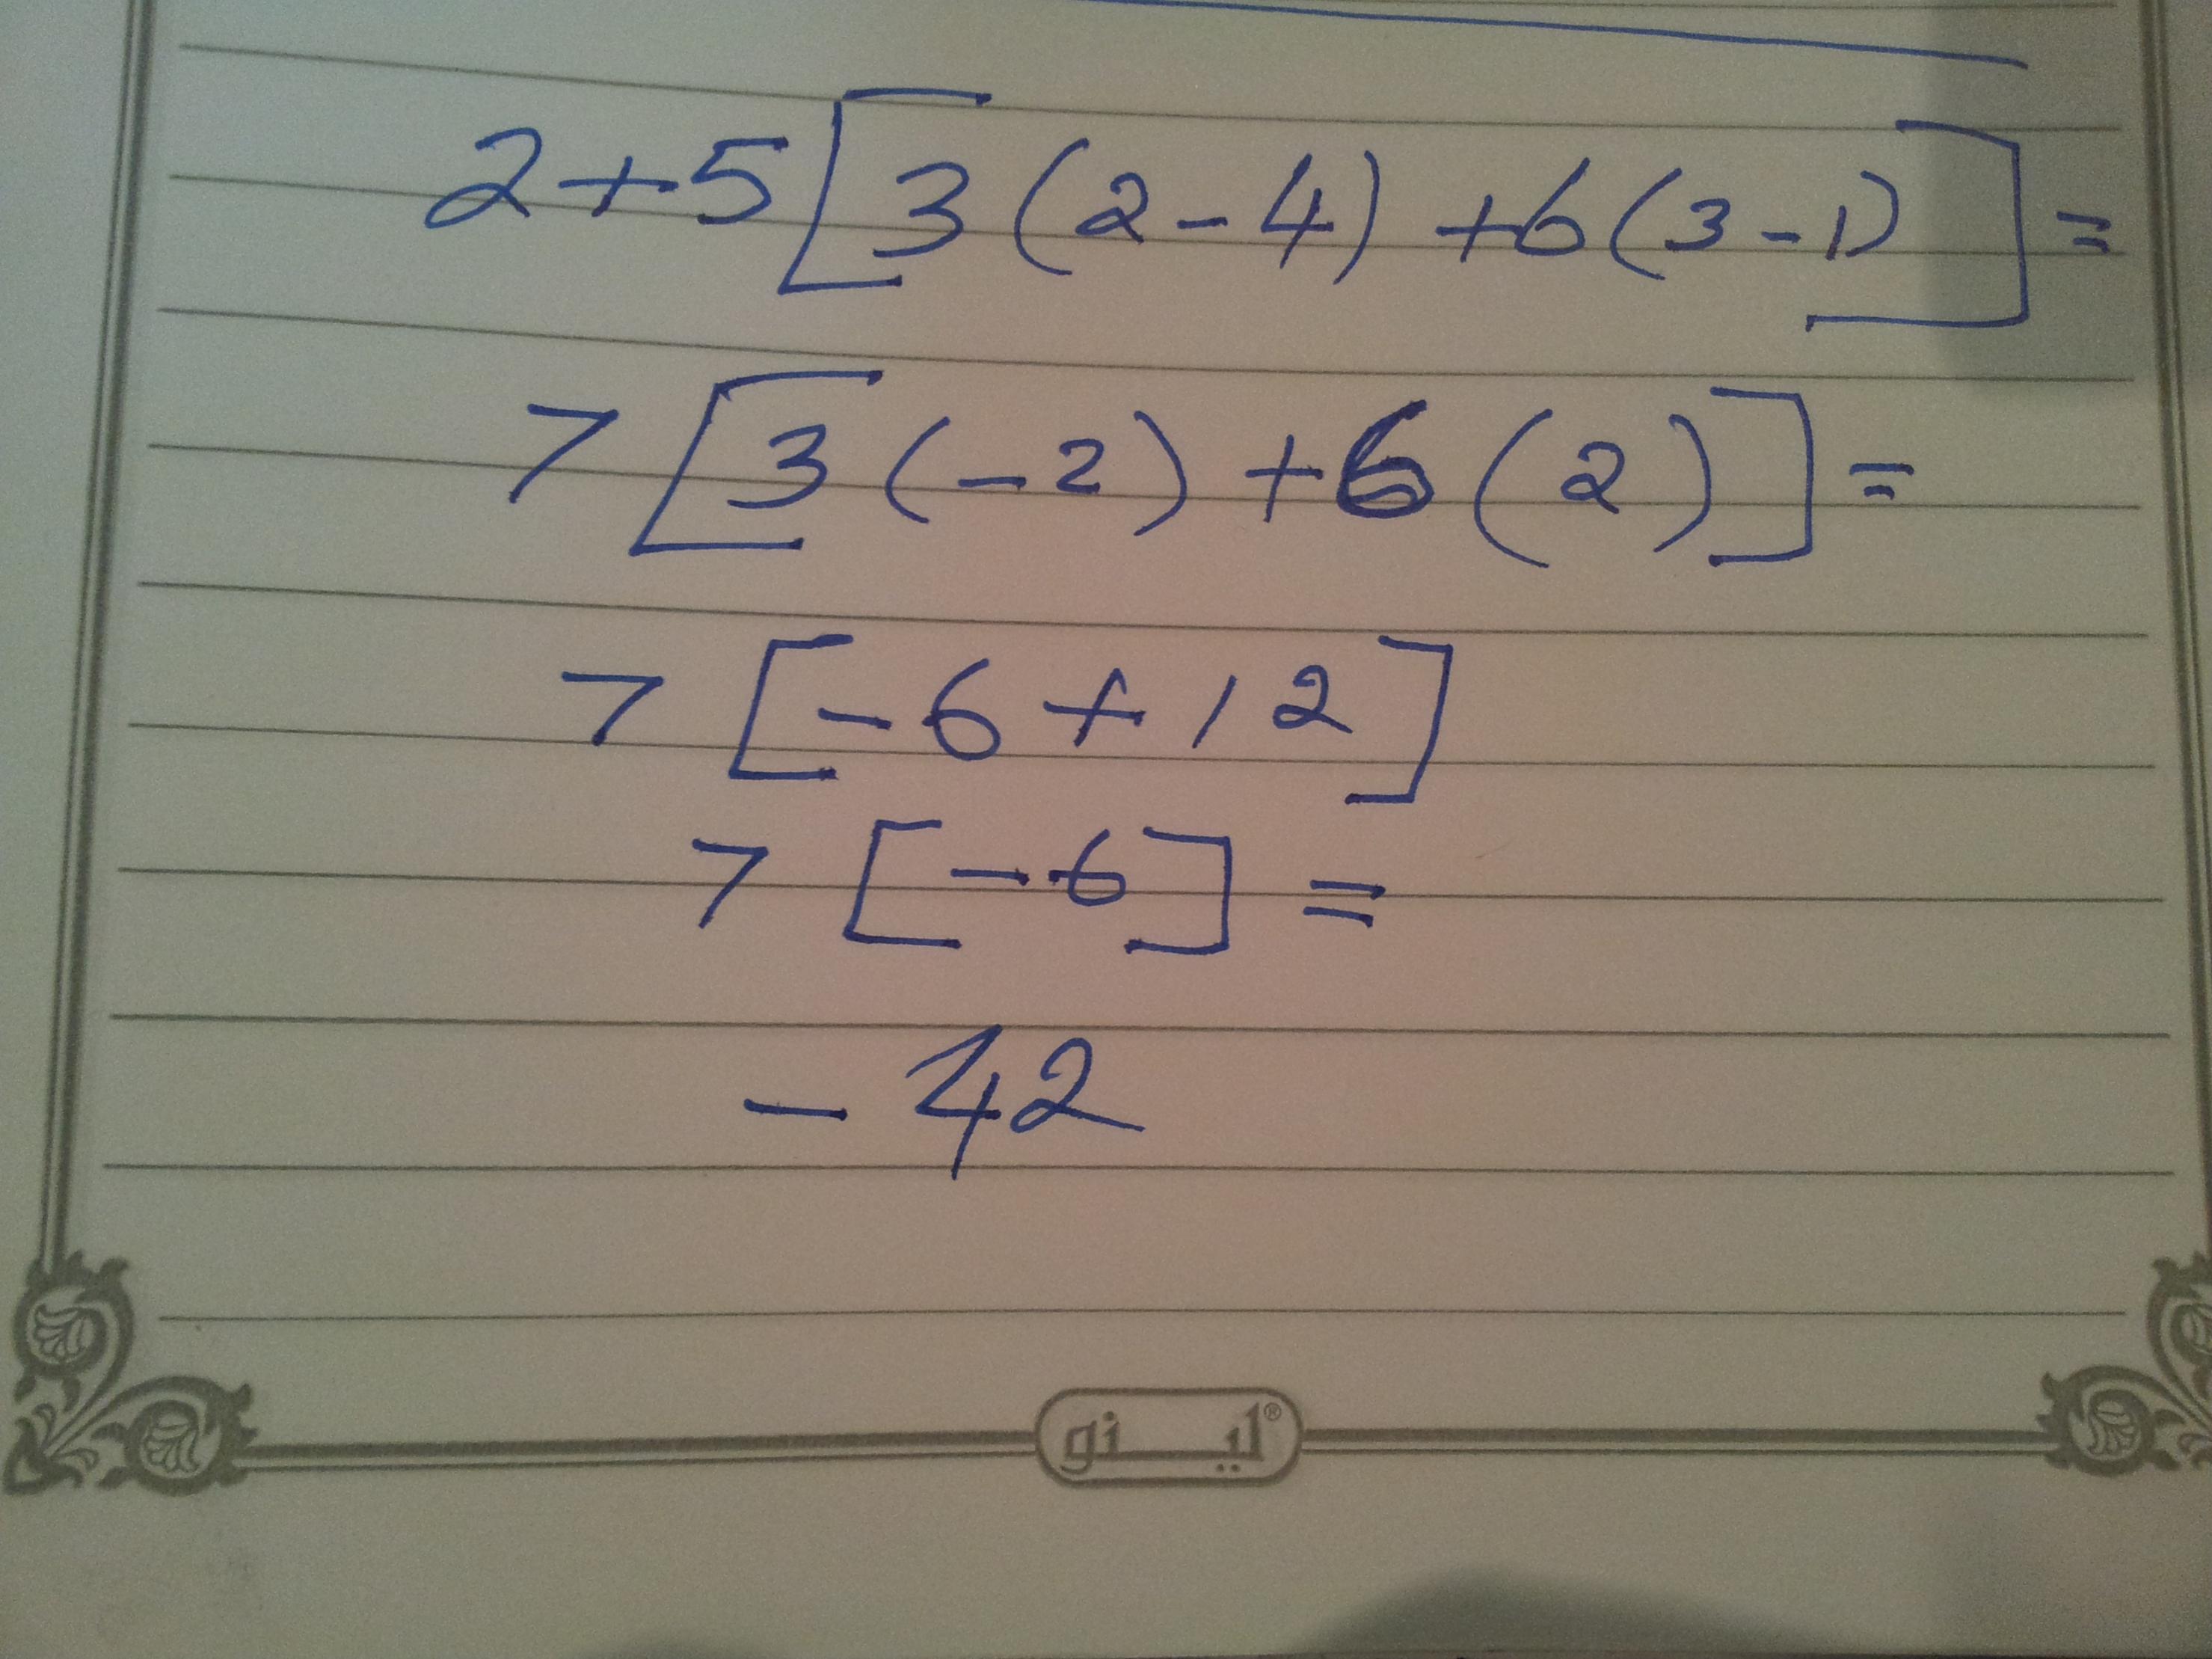 2+5[3(2-4)+6(3-1)]=
7[3(-2)+6(2)]=
7[-6+12]
7[-6]=
-42